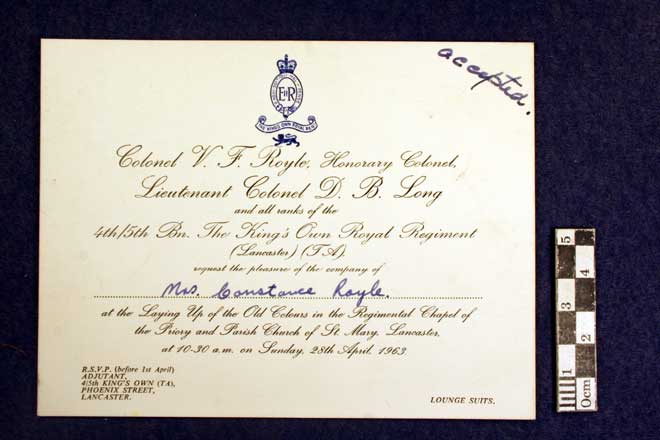 accepted.
EIIR
THE KING'S OWN ROYAL REGT
Colonel V. F. Royle, Honorary Colonel,
Lieutenant Colonel D. B. Long
and all ranks of the
4th/5th Bn. The King's Own Royal Regiment
(Lancaster) (T.A).
request the pleasure of the company of
Mrs. Constance Royle.
at the Laying Up of the Old Colours in the Regimental Chapel of
the Priory and Parish Church of St. Mary, Lancaster,
at 10-30 a.m. on Sunday, 28th April, 1963
R.S.V.P. (before 1st April)
ADJUTANT,
4/5th KING'S OWN (TA),
PHOENIX STREET,
LANCASTER.
LOUNGE SUITS.
5
4
3
2
1
0cm